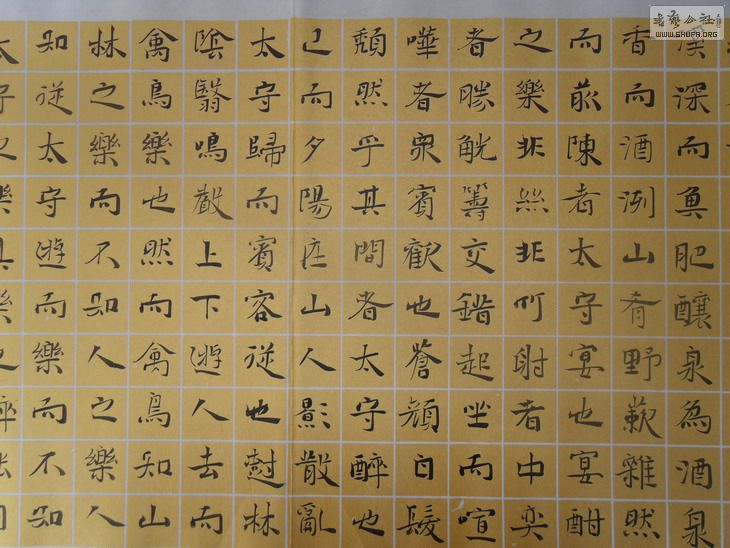 溪深而魚肥釀泉為酒泉
香而酒洌山肴野蔌雜然
而前陳者太守宴也宴酣
之樂非絲非竹射者中奕
者勝觥籌交錯起坐而喧
嘩者衆賓歡也蒼顏白髮
頹然乎其間者太守醉也
已而夕陽在山人影散亂
太守歸而賓客從也樹林
陰翳鳴聲上下遊人去而
禽鳥樂也然而禽鳥知山
林之樂而不知人之樂人
知從太守遊而樂而不知
太守之樂其樂之醉能同
书艺公社
WWW.SHUFA.ORG